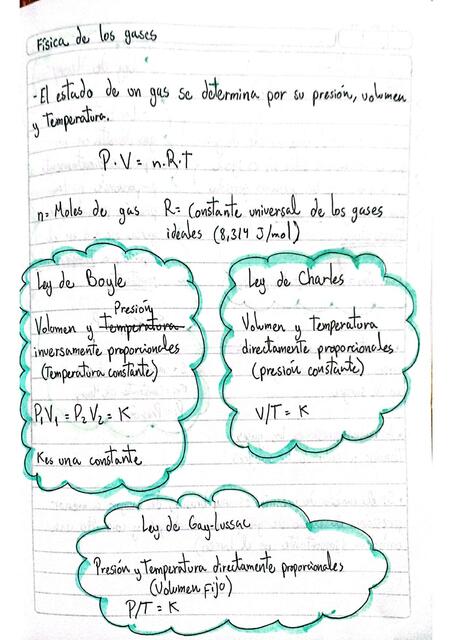 Física de los gases
- El estado de un gas se determina por su presión, volumen
y temperatura.
P.V = n.R.T
n = Moles de gas R = Constante universal de los gases
ideales (8,314 J/mol)
Ley de Boyle
Presión
Volumen y Temperatura
inversamente proporcionales
(Temperatura constante)
P₁V₁ = P₂V₂ = K
K es una constante
Ley de Charles
Volumen y Temperatura
directamente proporcionales
(presion constante)
V/T = K
Ley de Gay-Lussac
Presión y Temperatura directamente proporcionales
(Volumen Fijo)
P/T = K